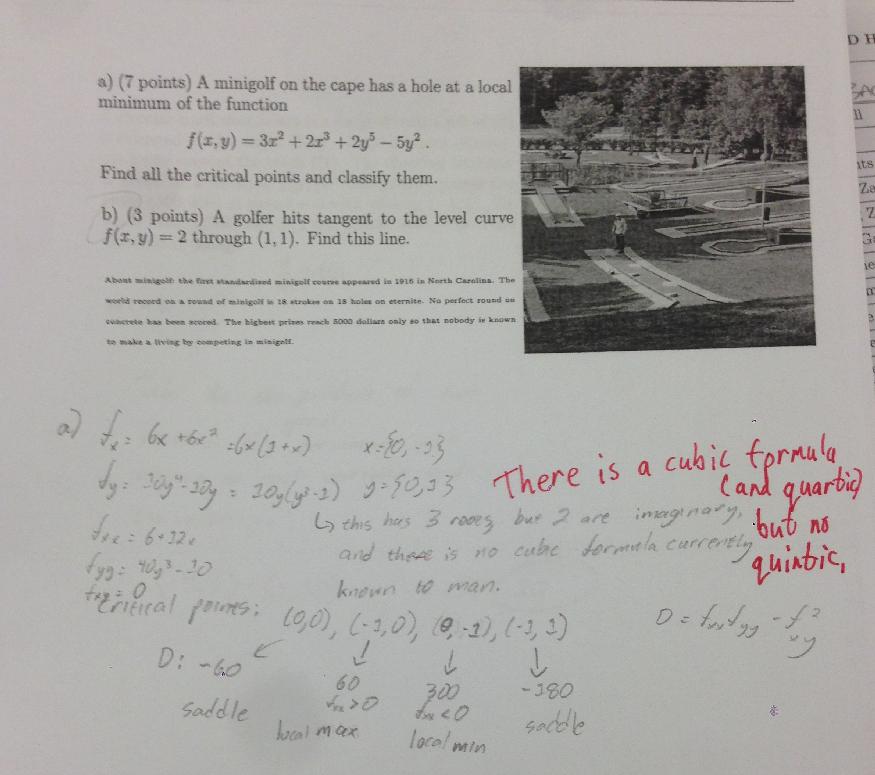 a) (7 points) A minigolf on the cape has a hole at a local
minimum of the function
f(x, y) = 3x² + 2x³ + 2y⁵ − 5y² .
Find all the critical points and classify them.
b) (3 points) A golfer hits tangent to the level curve
f(x, y) = 2 through (1, 1). Find this line.
About minigolf: the first standardized minigolf course appeared in 1916 in North Carolina. The
world record on a round of minigolf is 18 strokes on 18 holes on eternite. No perfect round on
concrete has been scored. The highest prizes reach 5000 dollars only so that nobody is known
to make a living by competing in minigolf.
a) fx = 6x + 6x² = 6x(1+x) x = {0, -1}
fy = 10y⁴ - 10y = 10y(y³-1) y = {0,1}
↳ this has 3 roots, but 2 are imaginary,
and there is no cubic formula currently
known to man.
There is a cubic formula
(and quartic)
but no
quintic.
fxx = 6+12x
fyy = 40y³ - 10
fxy = 0
Critical points: (0,0), (-1,0), (0,-1), (-1, 1)
D = fxx fyy - f²xy
D: -60 60 300 -180
fxx > 0 fxx < 0
saddle local max local min saddle
D H
ll
nts
Za
Z